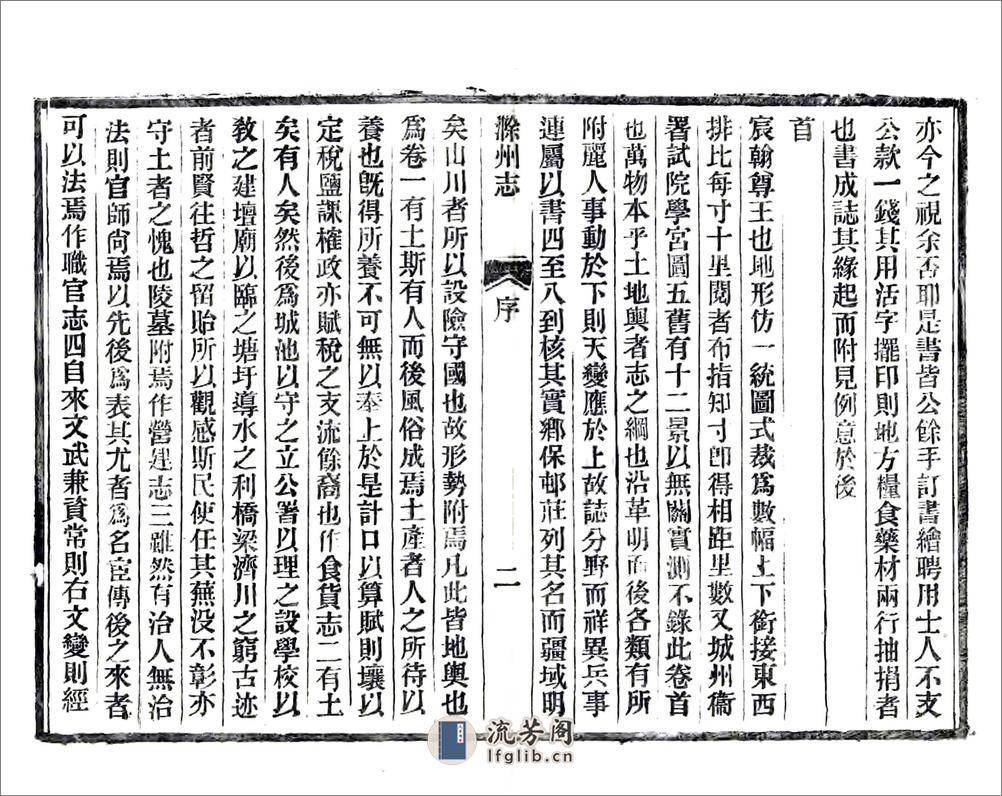 亦今之視余否耶是書皆公餘手訂書繪聘用士人不支
公款一錢其用活字擺印則地方糧食藥材兩行抽捐者
也書成誌其緣起而附見例意於後
首
宸翰尊王也地形仿一統圖式裁爲數幅上下銜接東西
排比每寸十里閱者布指知寸卽得相距里數又城州衙
署試院學宮圖五舊有十二景以無關實測不錄此卷首
也萬物本乎土地輿者志之綱也沿革明而後各類有所
附麗人事動於下則天變應於上故誌分野而祥異兵事
連屬以書四至八到核其實鄉保邨莊列其名而疆域明
滁州志 序 二
矣山川者所以設險守國也故形勢附焉凡此皆地輿也
爲卷一有土斯有人而後風俗成焉土產者人之所待以
養也旣得所養不可無以奉上於是計口以算賦則壤以
定稅鹽課榷政亦賦稅之支流餘裔也作食貨志二有土
矣有人矣然後爲城池以守之立公署以理之設學校以
敎之建壇廟以臨之塘圩導水之利橋梁濟川之窮古迹
者前賢往哲之留貽所以觀感斯民使任其蕪没不彰亦
守土者之愧也陵墓附焉作營建志三雖然有治人無治
法則官師尙焉以先後爲表其尤者爲名宦傳後之來者
可以法焉作職官志四自來文武兼資常則右文變則經
流芳閣
lfglib.cn